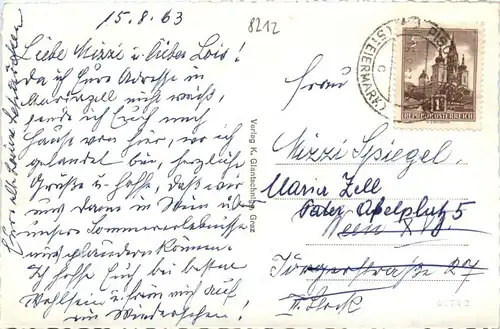 15.8.63
8212
Liebe Mizzi u. lieber Lois!
Da ich Eure Adresse in
Mariazell nicht weiß,
sende ich Euch nach
Hause von hier, wo ich
gelandet bin, herzliche
Grüße u. hoffe, daß wir
uns dann in Wien über
unsere Sommererlebnisse
ausplaudern können.
Ich hoffe Euch bei bestem
Wohlsein u. freue mich auf
ein Wiedersehen!
Verlag K. Glantschnigg, Graz
STEIERMARK
REPUBLIK ÖSTERREICH
Frau
Mizzi Spiegel,
Maria Zell
Pater Abelplatz 5
Wien XVI.
Jörgerstraße 27
II. Stock